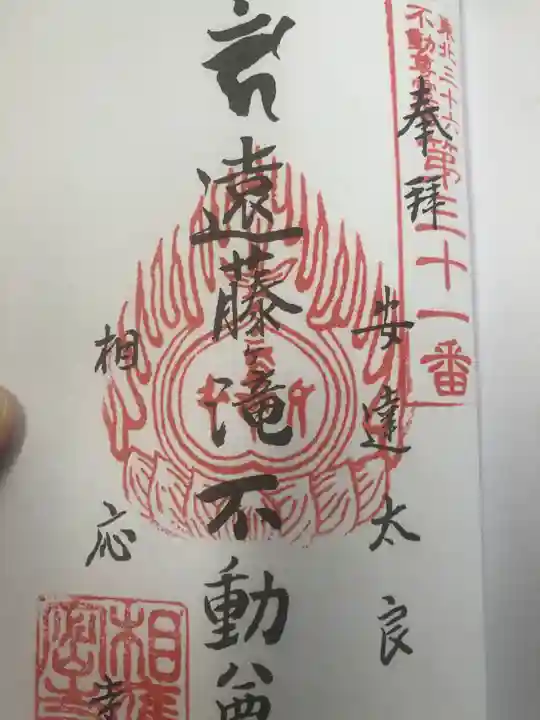 東北三十六
不動尊霊
第三十一番
奉拝
安達太良
遠藤ヶ滝不動尊
相応寺